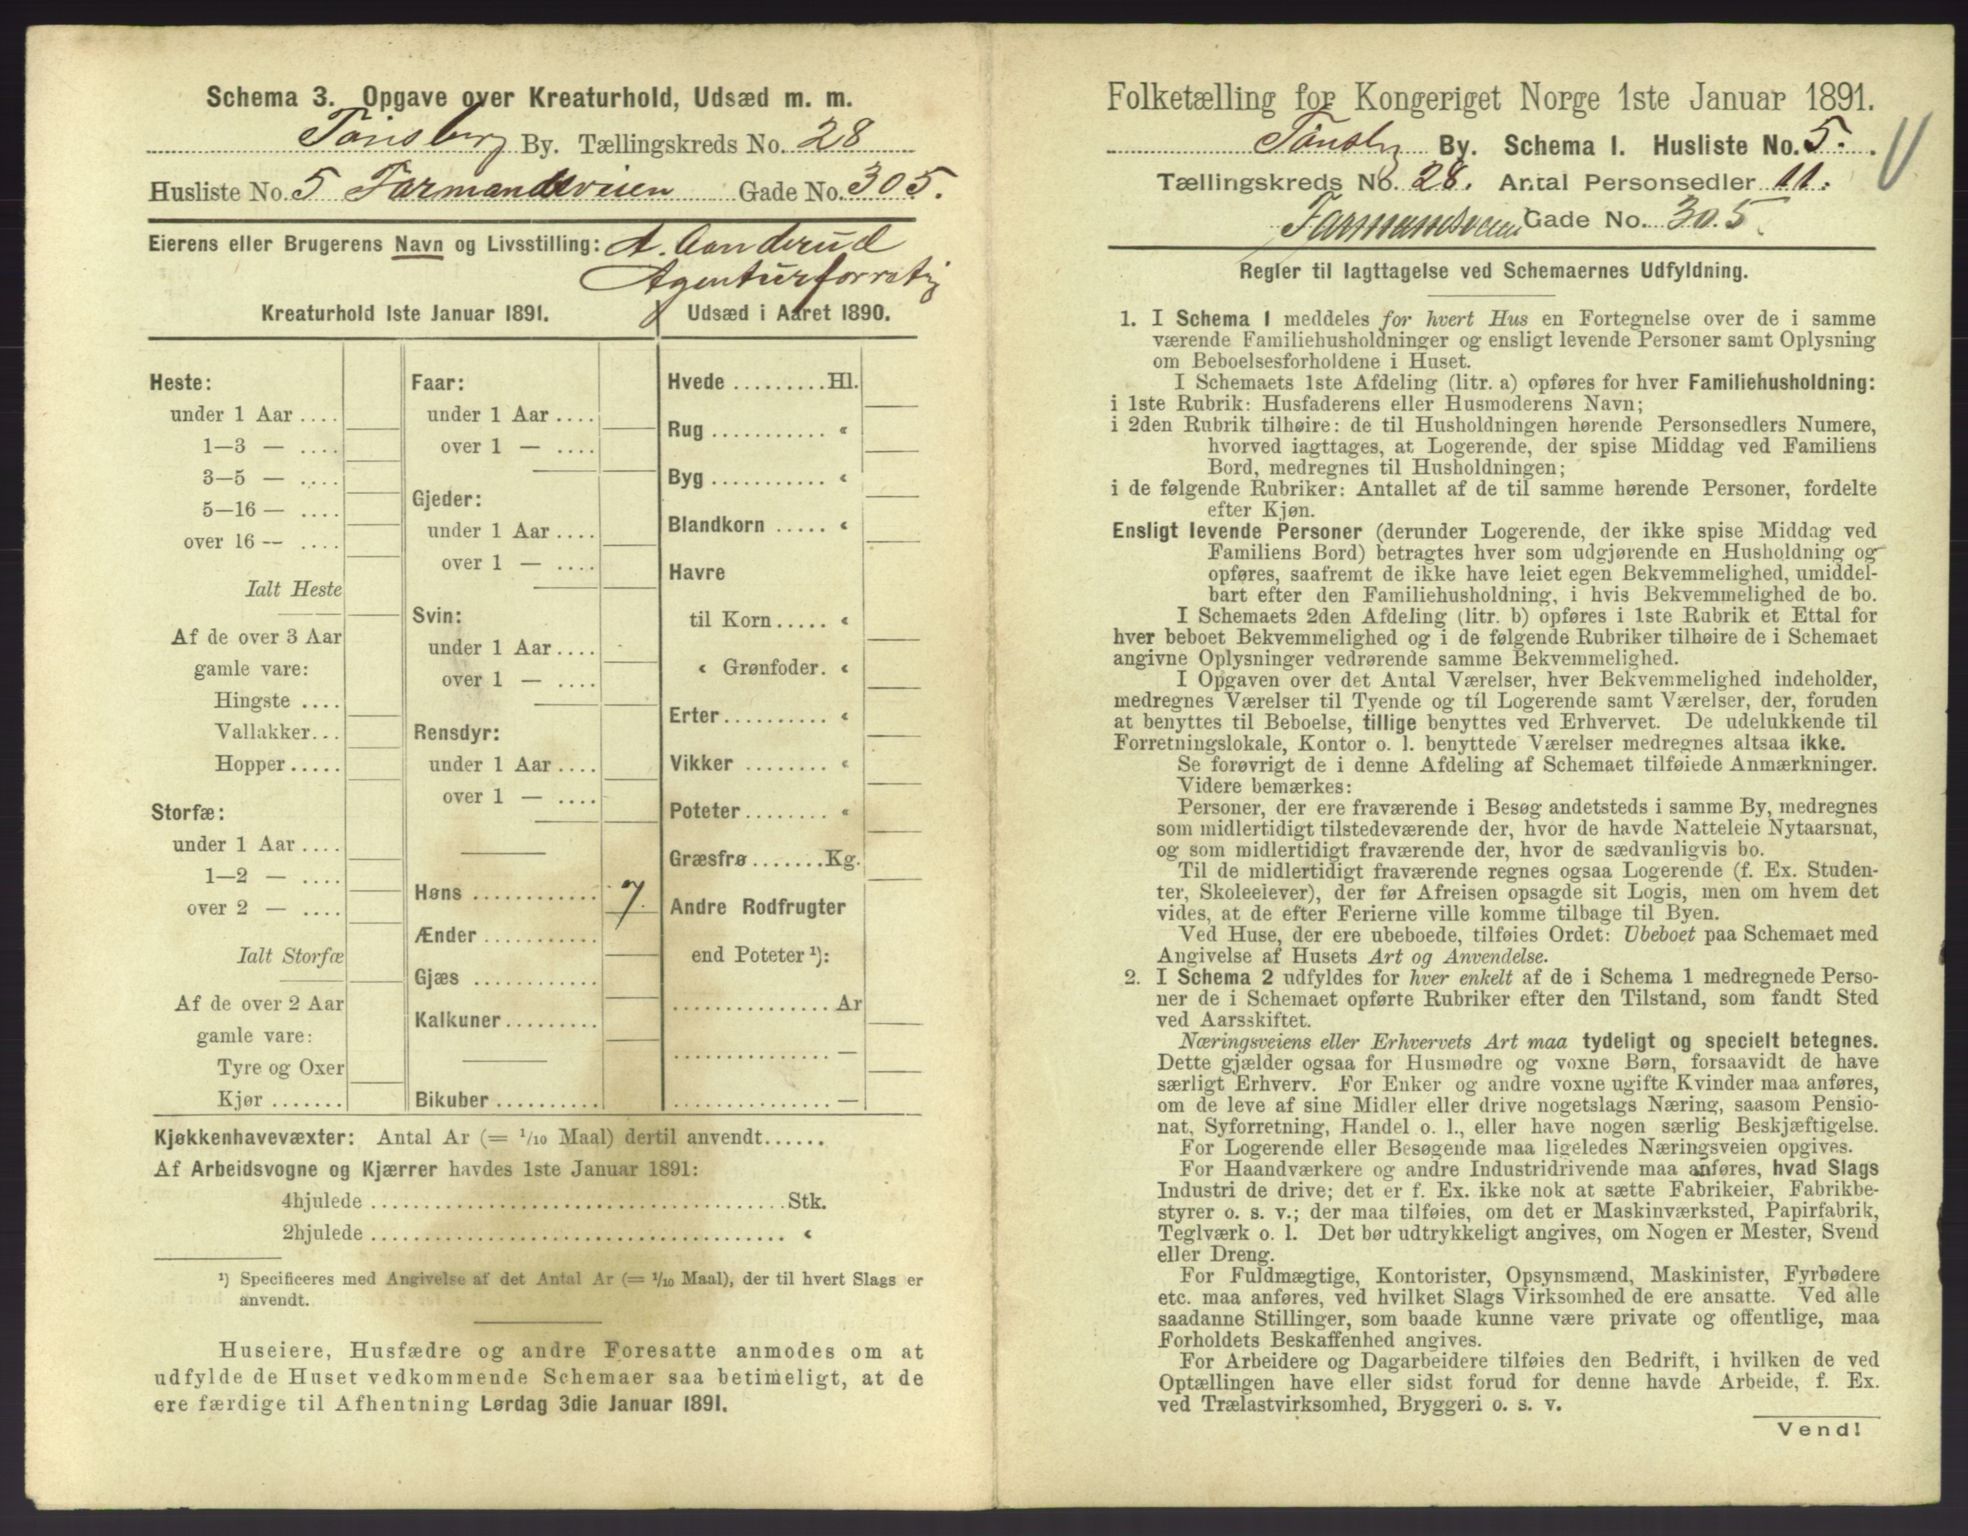 Schema 3. Opgave over Kreaturhold, Udsæd m. m.
Tönsberg By. Tællingskreds No. 28
Husliste No. 5 Farmandsveien Gade No. 305.
Eierens eller Brugerens Navn og Livsstilling: A. Aanderud
Agenturforretig
Kreaturhold 1ste Januar 1891.
Heste:
under 1 Aar ....
1—3 — ....
3—5 — ....
5—16 — ....
over 16 — ....
Ialt Heste
Af de over 3 Aar
gamle vare:
Hingste ....
Vallakker...
Hopper.....
Storfæ:
under 1 Aar....
1—2 — ....
over 2 — ....
Ialt Storfæ
Af de over 2 Aar
gamle vare:
Tyre og Oxer
Kjør .......
Faar:
under 1 Aar....
over 1 — ....
Gjeder:
under 1 Aar....
over 1 — ....
Svin:
under 1 Aar....
over 1 — ....
Rensdyr:
under 1 Aar....
over 1 — ....
Høns ............ 7.
Ænder...........
Gjæs ............
Kalkuner.........
Bikuber ..........
Udsæd i Aaret 1890.
Hvede .........Hl.
Rug ........... "
Byg ........... "
Blandkorn ..... "
Havre
til Korn..... "
" Grønfoder. "
Erter.......... "
Vikker ........ "
Poteter........ "
Græsfrø.......Kg.
Andre Rodfrugter
end Poteter ¹):
...............Ar
...............—
...............—
Kjøkkenhavevæxter: Antal Ar (= 1/10 Maal) dertil anvendt......
Af Arbeidsvogne og Kjærrer havdes 1ste Januar 1891:
4hjulede ......................................Stk.
2hjulede ...................................... "
¹) Specificeres med Angivelse af det Antal Ar (= 1/10 Maal), der til hvert Slags er
anvendt.
Huseiere, Husfædre og andre Foresatte anmodes om at
udfylde de Huset vedkommende Schemaer saa betimeligt, at de
ere færdige til Afhentning Lørdag 3die Januar 1891.
Folketælling for Kongeriget Norge 1ste Januar 1891.
Tönsbg By. Schema I. Husliste No. 5.
Tællingskreds No. 28. Antal Personsedler 11.
Farmandsveien Gade No. 305.
Regler til Iagttagelse ved Schemaernes Udfyldning.
1. I Schema I meddeles for hvert Hus en Fortegnelse over de i samme
værende Familiehusholdninger og ensligt levende Personer samt Oplysning
om Beboelsesforholdene i Huset.
I Schemaets 1ste Afdeling (litr. a) opføres for hver Familiehusholdning:
i 1ste Rubrik: Husfaderens eller Husmoderens Navn;
i 2den Rubrik tilhøire: de til Husholdningen hørende Personsedlers Numere,
hvorved iagttages, at Logerende, der spise Middag ved Familiens
Bord, medregnes til Husholdningen;
i de følgende Rubriker: Antallet af de til samme hørende Personer, fordelte
efter Kjøn.
Ensligt levende Personer (derunder Logerende, der ikke spise Middag ved
Familiens Bord) betragtes hver som udgjørende en Husholdning og
opføres, saafremt de ikke have leiet egen Bekvemmelighed, umiddel-
bart efter den Familiehusholdning, i hvis Bekvemmelighed de bo.
I Schemaets 2den Afdeling (litr. b) opføres i 1ste Rubrik et Ettal for
hver beboet Bekvemmelighed og i de følgende Rubriker tilhøire de i Schemaet
angivne Oplysninger vedrørende samme Bekvemmelighed.
I Opgaven over det Antal Værelser, hver Bekvemmelighed indeholder,
medregnes Værelser til Tyende og til Logerende samt Værelser, der, foruden
at benyttes til Beboelse, tillige benyttes ved Erhvervet. De udelukkende til
Forretningslokale, Kontor o. l. benyttede Værelser medregnes altsaa ikke.
Se forøvrigt de i denne Afdeling af Schemaet tilføiede Anmærkninger.
Videre bemærkes:
Personer, der ere fraværende i Besøg andetsteds i samme By, medregnes
som midlertidigt tilstedeværende der, hvor de havde Natteleie Nytaarsnat,
og som midlertidigt fraværende der, hvor de sædvanligvis bo.
Til de midlertidigt fraværende regnes ogsaa Logerende (f. Ex. Studen-
ter, Skoleelever), der før Afreisen opsagde sit Logis, men om hvem det
vides, at de efter Ferierne ville komme tilbage til Byen.
Ved Huse, der ere ubeboede, tilføies Ordet: Ubeboet paa Schemaet med
Angivelse af Husets Art og Anvendelse.
2. I Schema 2 udfyldes for hver enkelt af de i Schema 1 medregnede Perso-
ner de i Schemaet opførte Rubriker efter den Tilstand, som fandt Sted
ved Aarsskiftet.
Næringsveiens eller Erhvervets Art maa tydeligt og specielt betegnes.
Dette gjælder ogsaa for Husmødre og voxne Børn, forsaavidt de have
særligt Erhverv. For Enker og andre voxne ugifte Kvinder maa anføres,
om de leve af sine Midler eller drive nogetslags Næring, saasom Pensio-
nat, Syforretning, Handel o. l., eller have nogen særlig Beskjæftigelse.
For Logerende eller Besøgende maa ligeledes Næringsveien opgives.
For Haandværkere og andre Industridrivende maa anføres, hvad Slags
Industri de drive; det er f. Ex. ikke nok at sætte Fabrikeier, Fabrikbe-
styrer o. s. v.; der maa tilføies, om det er Maskinværksted, Papirfabrik,
Teglværk o. l. Det bør udtrykkeligt angives, om Nogen er Mester, Svend
eller Dreng.
For Fuldmægtige, Kontorister, Opsynsmænd, Maskinister, Fyrbødere
etc. maa anføres, ved hvilket Slags Virksomhed de ere ansatte. Ved alle
saadanne Stillinger, som baade kunne være private og offentlige, maa
Forholdets Beskaffenhed angives.
For Arbeidere og Dagarbeidere tilføies den Bedrift, i hvilken de ved
Optællingen have eller sidst forud for denne havde Arbeide, f. Ex.
ved Trælastvirksomhed, Bryggeri o. s. v.
Vend!